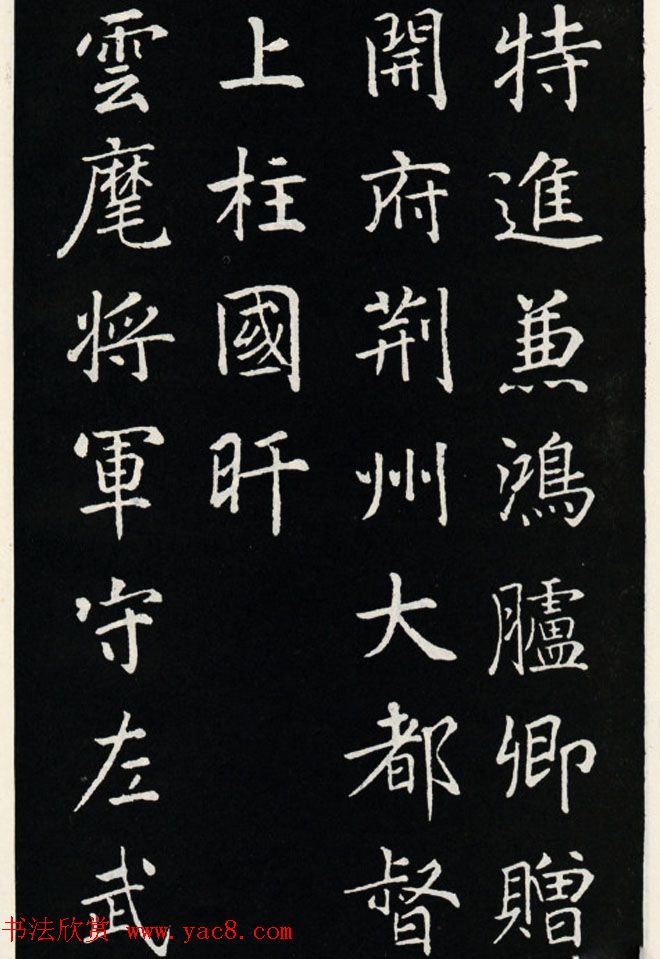 特進兼鴻臚卿贈
開府荆州大都督
上柱國旰
雲麾將軍守左武
书法欣赏 www.yac8.com